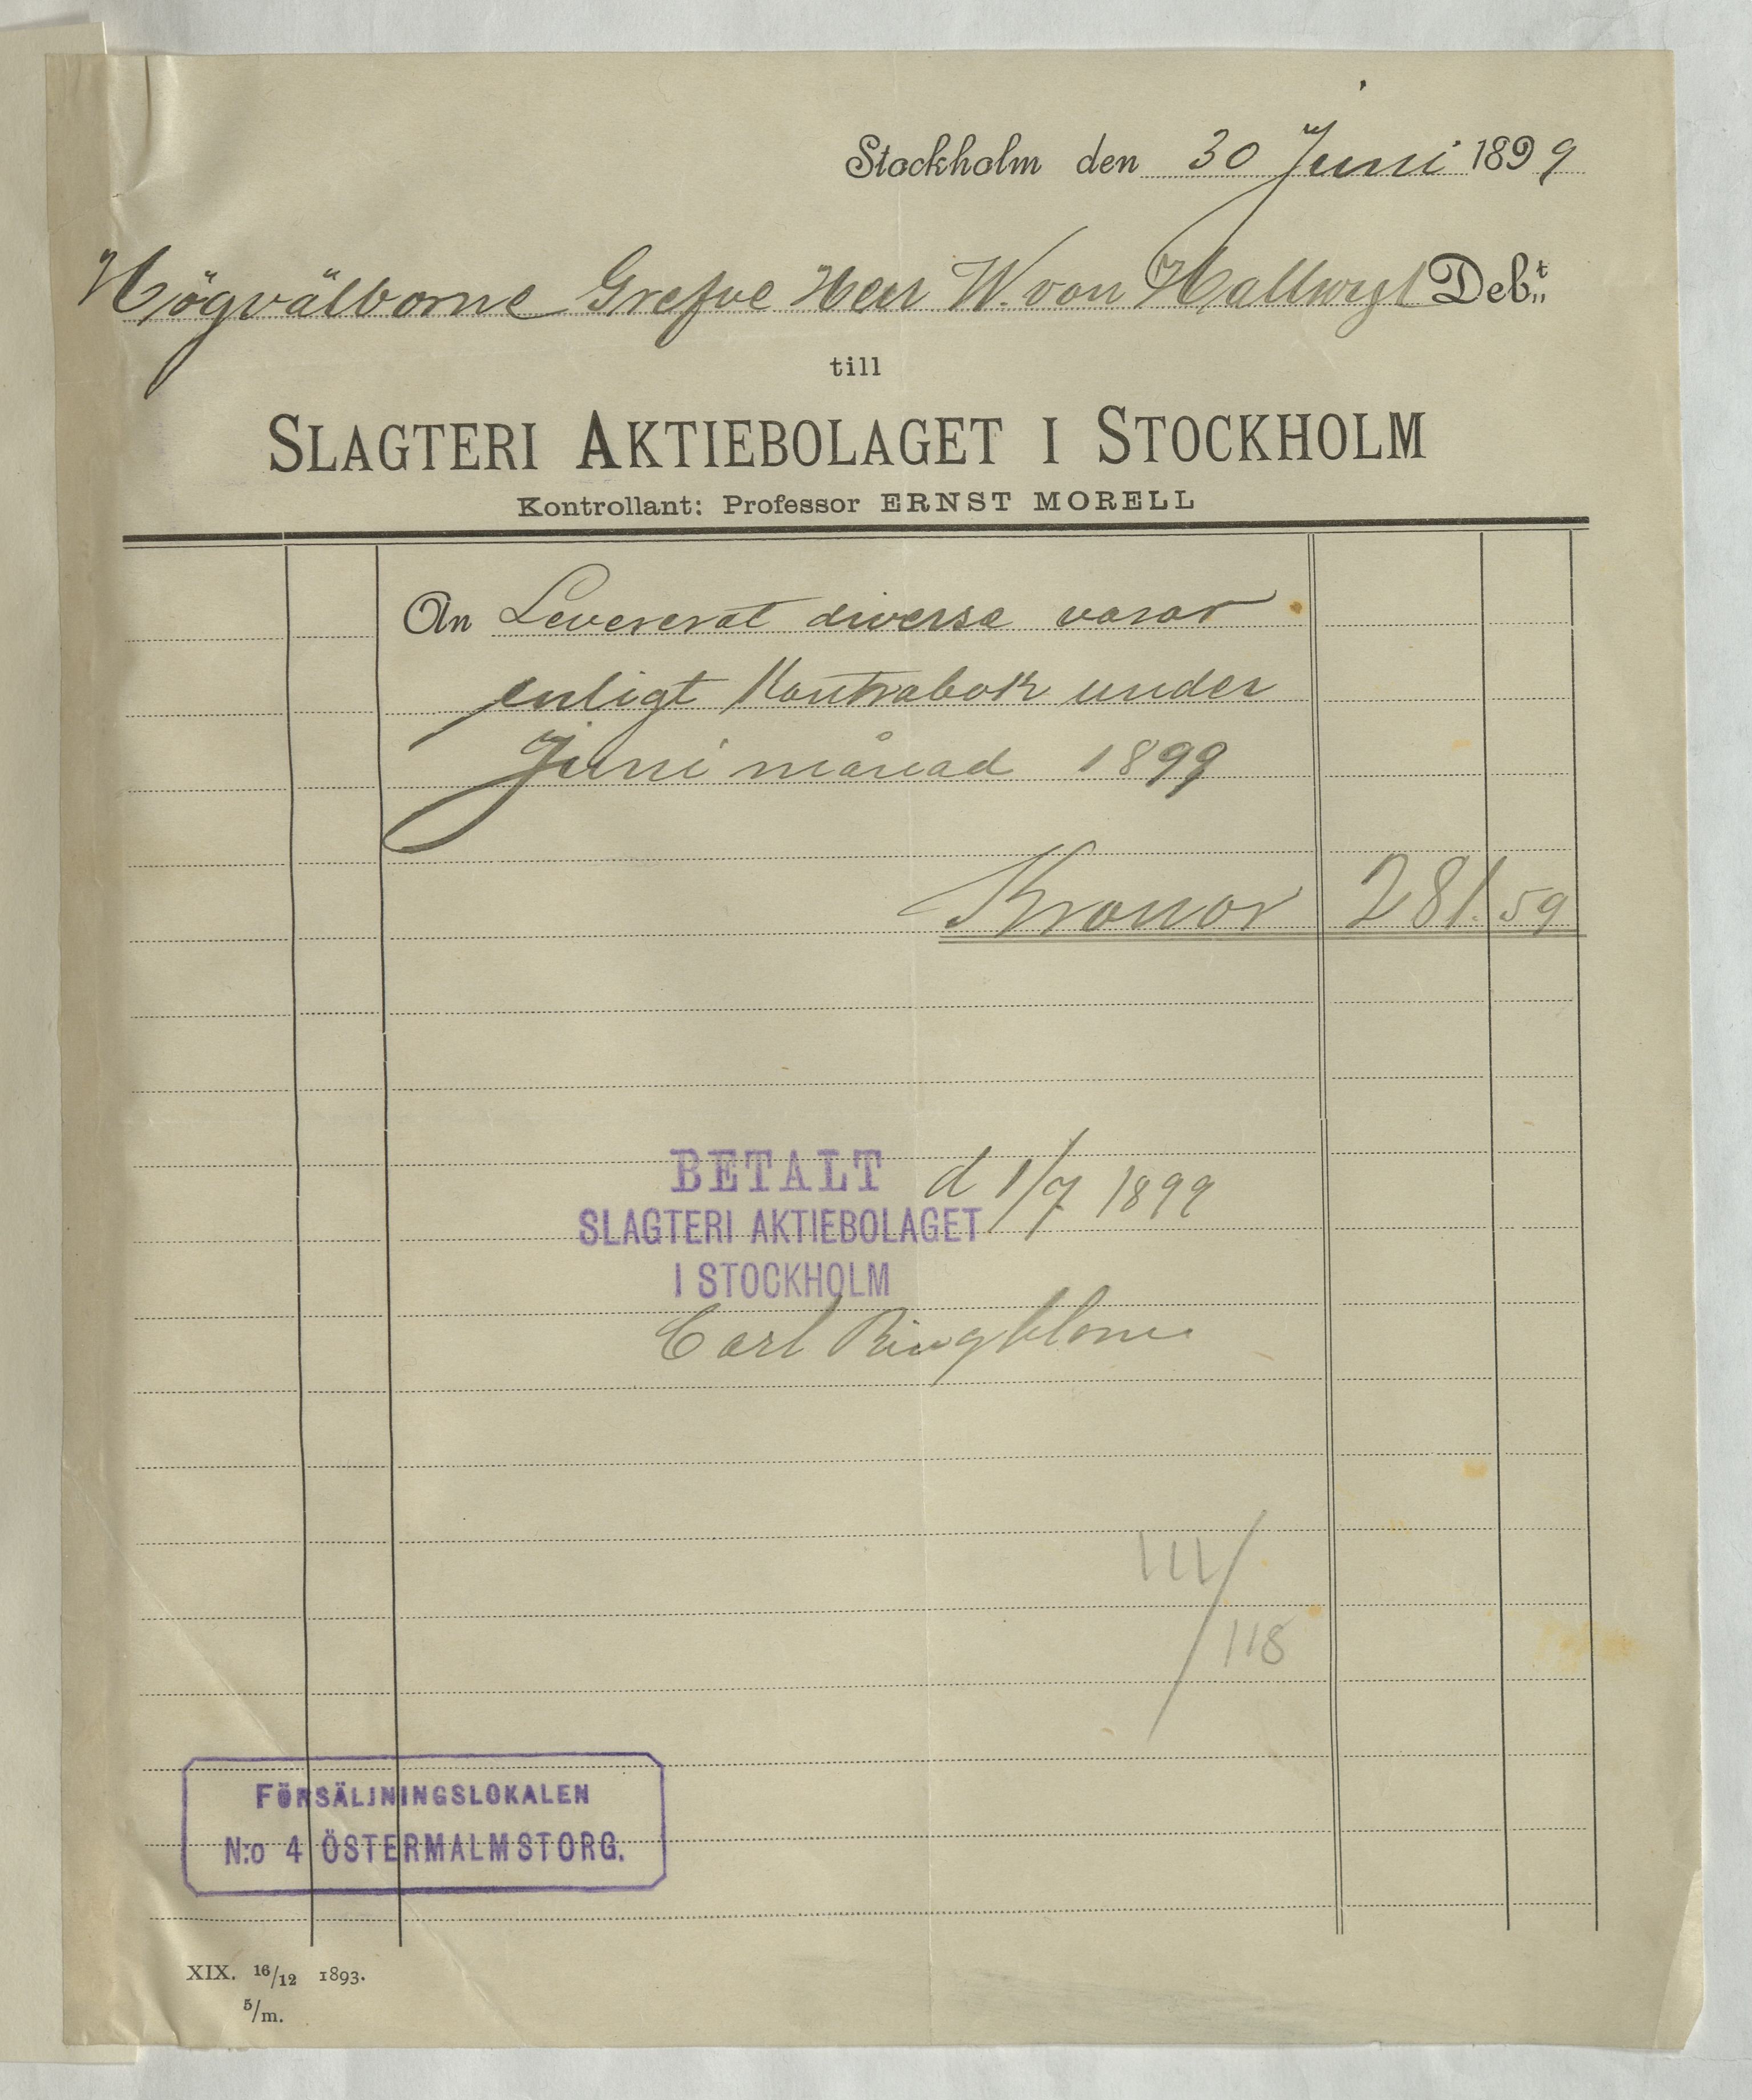 Stockholm den 30 Juni 1899
Högvälborne Grefve Herr W. von Hallwyl Deb:t
till
SLAGTERI AKTIEBOLAGET I STOCKHOLM
Kontrollant: Professor ERNST MORELL
An Levererat diverse varor
enligt Kontrabok under
Juni månad 1899
Kronor 281.59
BETALT d 1/7 1899
SLAGTERI AKTIEBOLAGET
I STOCKHOLM
Carl Ringblom
111/118
FÖRSÄLJNINGSLOKALEN
N:o 4 ÖSTERMALMSTORG.
XIX. 16/12 1893.
5/m.